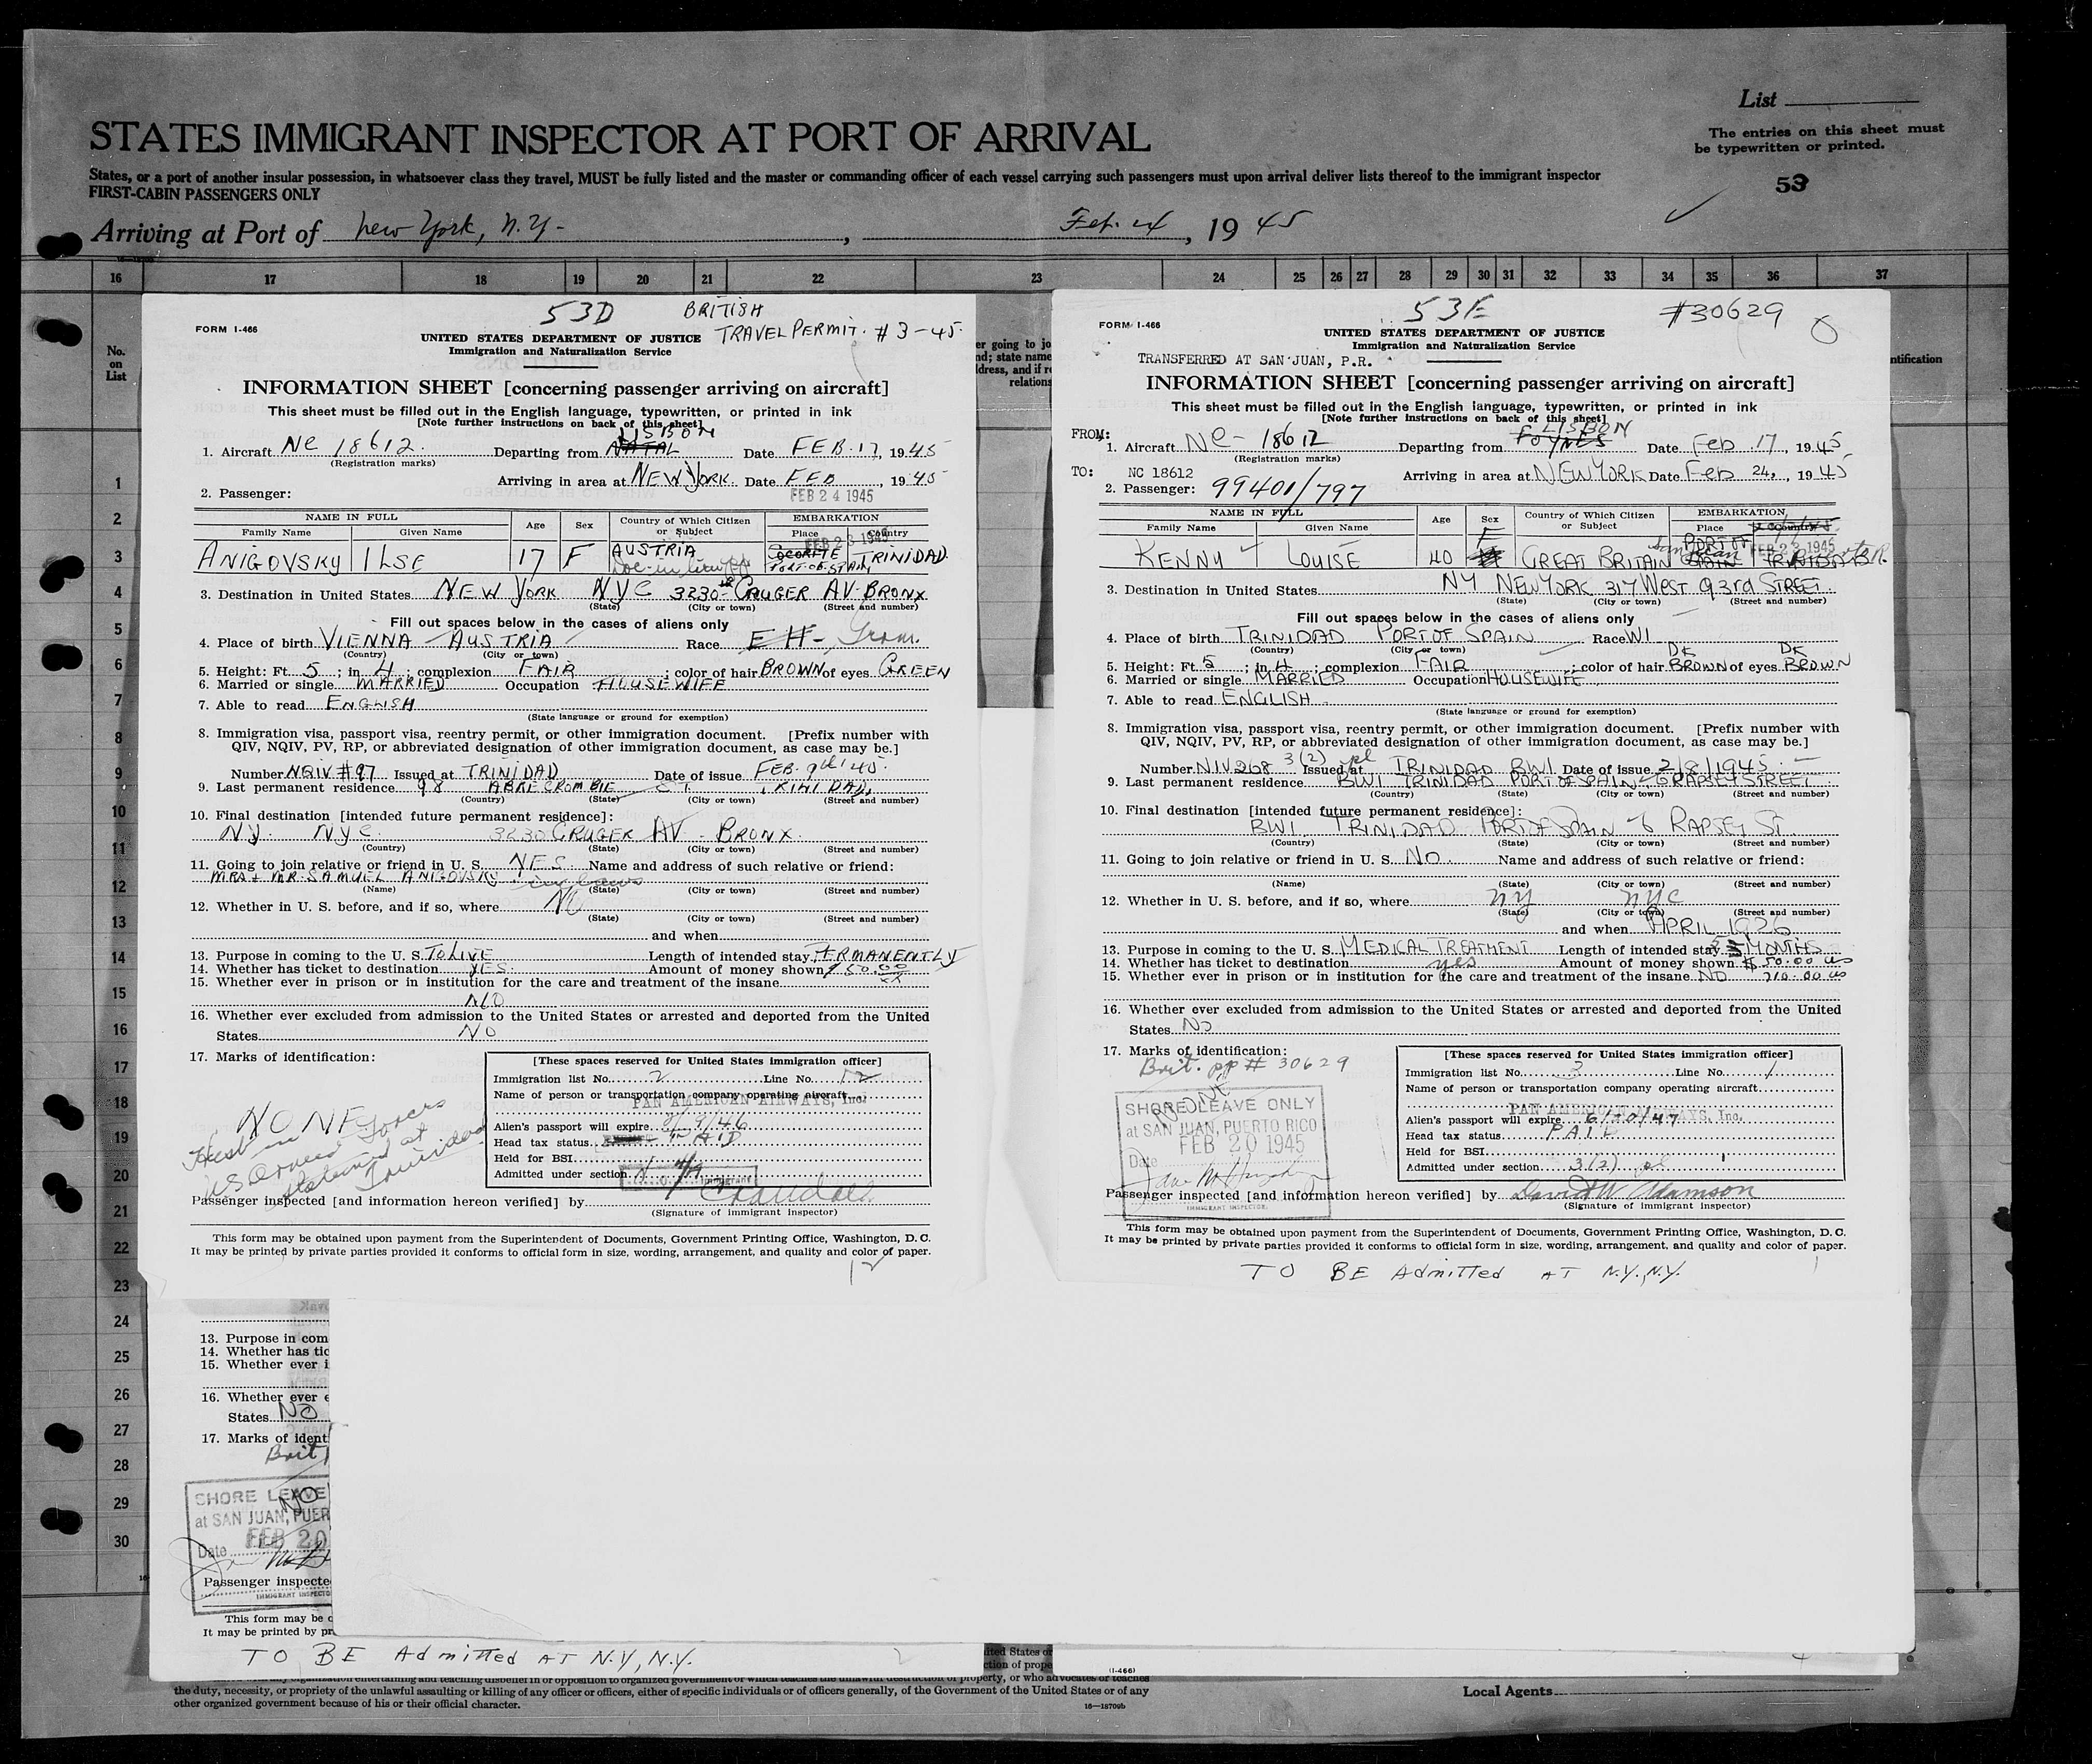 List
STATES IMMIGRANT INSPECTOR AT PORT OF ARRIVAL
The entries on this sheet must
be typewritten or printed.
States, or a port of another insular possession, in whatsoever class they travel, MUST be fully listed and the master or commanding officer of each vessel carrying such passengers must upon arrival deliver lists thereof to the immigrant inspector
FIRST-CABIN PASSENGERS ONLY
53
Arriving at Port of New York, N.Y. , Feb. 24, 1945
16 17 18 19 20 21 22 23 24 25 26 27 28 29 30 31 32 33 34 35 36 37
No.
on
List
1
2
3
4
5
6
7
8
9
10
11
12
13
14
15
16
17
18
19
20
21
22
23
24
25
26
27
28
29
30
53D BRITISH
TRAVEL PERMIT. # 3-45.
FORM I-466
UNITED STATES DEPARTMENT OF JUSTICE
Immigration and Naturalization Service
INFORMATION SHEET [concerning passenger arriving on aircraft]
This sheet must be filled out in the English language, typewritten, or printed in ink
[Note further instructions on back of this sheet]
LISBON
1. Aircraft NC 18612. Departing from NATAL Date FEB. 17, 1945
(Registration marks)
Arriving in area at NEW YORK. Date FEB , 1945
FEB 24 1945
2. Passenger:
NAME IN FULL Age Sex Country of Which Citizen or Subject EMBARKATION
Family Name Given Name Place Country
FEB 23 1945
ANIGOVSKY ILSE 17 F AUSTRIA TRINIDAD
PORT OF SPAIN
3. Destination in United States NEW YORK NYC 3230 CRUGER AV. BRONX
(State) (City or town) (Street and number)
Fill out spaces below in the cases of aliens only
4. Place of birth VIENNA AUSTRIA Race
(Country) (City or town)
5. Height: Ft. 5 ; in 4 ; complexion FAIR ; color of hair BROWN of eyes GREEN
6. Married or single MARRIED Occupation HOUSEWIFE
7. Able to read ENGLISH
(State language or ground for exemption)
8. Immigration visa, passport visa, reentry permit, or other immigration document. [Prefix number with
QIV, NQIV, PV, RP, or abbreviated designation of other immigration document, as case may be.]
Number NQIV #97 Issued at TRINIDAD Date of issue FEB. 9th/45.
9. Last permanent residence 98 ABRECROMBIE ST TRINIDAD,
(Country) (State) (City or town) (Street and number)
10. Final destination [intended future permanent residence]:
NY. NYC. 3230 CRUGER AV. BRONX.
(Country) (State) (City or town) (Street and number)
11. Going to join relative or friend in U. S. YES. Name and address of such relative or friend:
MRS + MR. SAMUEL ANIGOVSKY in laws
(Name) (State) (City or town) (Street and number)
12. Whether in U. S. before, and if so, where No
(State) (City or town) (Street and number)
and when
13. Purpose in coming to the U. S. TO LIVE Length of intended stay PERMANENTLY
14. Whether has ticket to destination YES. Amount of money shown $50.00
15. Whether ever in prison or in institution for the care and treatment of the insane
NO
16. Whether ever excluded from admission to the United States or arrested and deported from the United
States NO
17. Marks of identification:
NONE
Husband in
US Armed Forces
stationed at
Trinidad
[These spaces reserved for United States immigration officer]
Immigration list No. 2 Line No. 12
Name of person or transportation company operating aircraft
PAN AMERICAN AIRWAYS, Inc.
Alien's passport will expire 2/9/46
Head tax status PAID
Held for BSI
Admitted under section
Immigrant
Passenger inspected [and information hereon verified] by
(Signature of immigrant inspector)
This form may be obtained upon payment from the Superintendent of Documents, Government Printing Office, Washington, D. C.
It may be printed by private parties provided it conforms to official form in size, wording, arrangement, and quality and color of paper.
12
53E #30629
FORM I-466
UNITED STATES DEPARTMENT OF JUSTICE
Immigration and Naturalization Service
TRANSFERRED AT SAN JUAN, P.R.
INFORMATION SHEET [concerning passenger arriving on aircraft]
This sheet must be filled out in the English language, typewritten, or printed in ink
[Note further instructions on back of this sheet]
LISBON
FROM: 1. Aircraft NC- 18612 Departing from FOYNES Date Feb 17, 1945
(Registration marks)
TO: NC 18612 Arriving in area at NEW YORK Date Feb 24, 1945
2. Passenger: 99401/797
NAME IN FULL Age Sex Country of Which Citizen or Subject EMBARKATION
Family Name Given Name Place Country
F PORT OF FEB 23 1945
KENNY LOUISE 40 M GREAT BRITAIN San Juan SPAIN TRINIDAD P.R.
3. Destination in United States NY NEW YORK 317 West 93rd STREET
(State) (City or town) (Street and number)
Fill out spaces below in the cases of aliens only
4. Place of birth TRINIDAD PORT OF SPAIN Race WI
(Country) (City or town)
DK DK
5. Height: Ft. 5 ; in 4 ; complexion FAIR ; color of hair BROWN of eyes BROWN
6. Married or single MARRIED Occupation HOUSEWIFE
7. Able to read ENGLISH
(State language or ground for exemption)
8. Immigration visa, passport visa, reentry permit, or other immigration document. [Prefix number with
QIV, NQIV, PV, RP, or abbreviated designation of other immigration document, as case may be.]
Number NIV 268 3(2) pl Issued at TRINIDAD BWI Date of issue 2/8/1945
9. Last permanent residence BWI TRINIDAD PORT OF SPAIN 6 RAPSEY STREET
(Country) (State) (City or town) (Street and number)
10. Final destination [intended future permanent residence]:
BWI TRINIDAD PORT OF SPAIN 6 RAPSEY ST.
(Country) (State) (City or town) (Street and number)
11. Going to join relative or friend in U. S. NO. Name and address of such relative or friend:
(Name) (State) (City or town) (Street and number)
12. Whether in U. S. before, and if so, where NY NYC
(State) (City or town) (Street and number)
and when APRIL 1926
13. Purpose in coming to the U. S. MEDICAL TREATMENT Length of intended stay MONTHS
14. Whether has ticket to destination yes Amount of money shown $50.00 US
15. Whether ever in prison or in institution for the care and treatment of the insane NO 210.00 US
16. Whether ever excluded from admission to the United States or arrested and deported from the United
States NO
17. Marks of identification:
Brit. pp # 30629
NONE
SHORE LEAVE ONLY
at SAN JUAN, PUERTO RICO
FEB 20 1945
Date
IMMIGRANT INSPECTOR.
[These spaces reserved for United States immigration officer]
Immigration list No. 3 Line No. 1
Name of person or transportation company operating aircraft
PAN AMERICAN AIRWAYS, Inc.
Alien's passport will expire 6/20/47
Head tax status PAID
Held for BSI
Admitted under section 3(2) pl
Passenger inspected [and information hereon verified] by David W Adamson
(Signature of immigrant inspector)
This form may be obtained upon payment from the Superintendent of Documents, Government Printing Office, Washington, D. C.
It may be printed by private parties provided it conforms to official form in size, wording, arrangement, and quality and color of paper.
TO BE Admitted AT N.Y., N.Y.
13. Purpose in com
14. Whether has tic
15. Whether ever i
16. Whether ever e
States NO
17. Marks of ident
Brit
NO
SHORE LEAVE
at SAN JUAN, PUER
FEB 20
Date
Passenger inspecte
IMMIGRANT INSPECTO
This form may be o
It may be printed by pr
TO BE Admitted AT N.Y., N.Y.
(I-466)
the duty, necessity, or propriety of the unlawful assaulting or killing of any officer or officers, either of specific individuals or of officers generally, of the Government of the United States or of any
other organized government because of his or their official character.
16—18709b
Local Agents